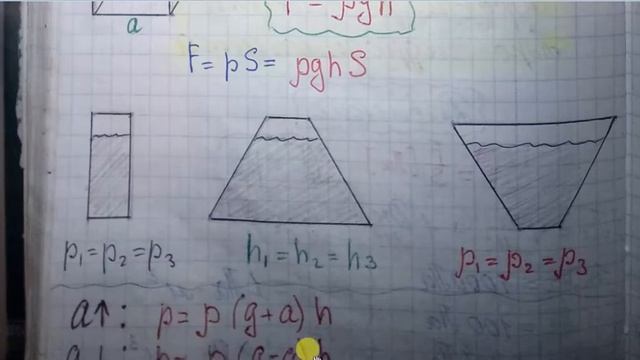 a
F = pS = ρghS
p₁=p₂=p₃
h₁=h₂=h₃
ρ₁=ρ₂=ρ₃
a↑: p=ρ(g+a)h